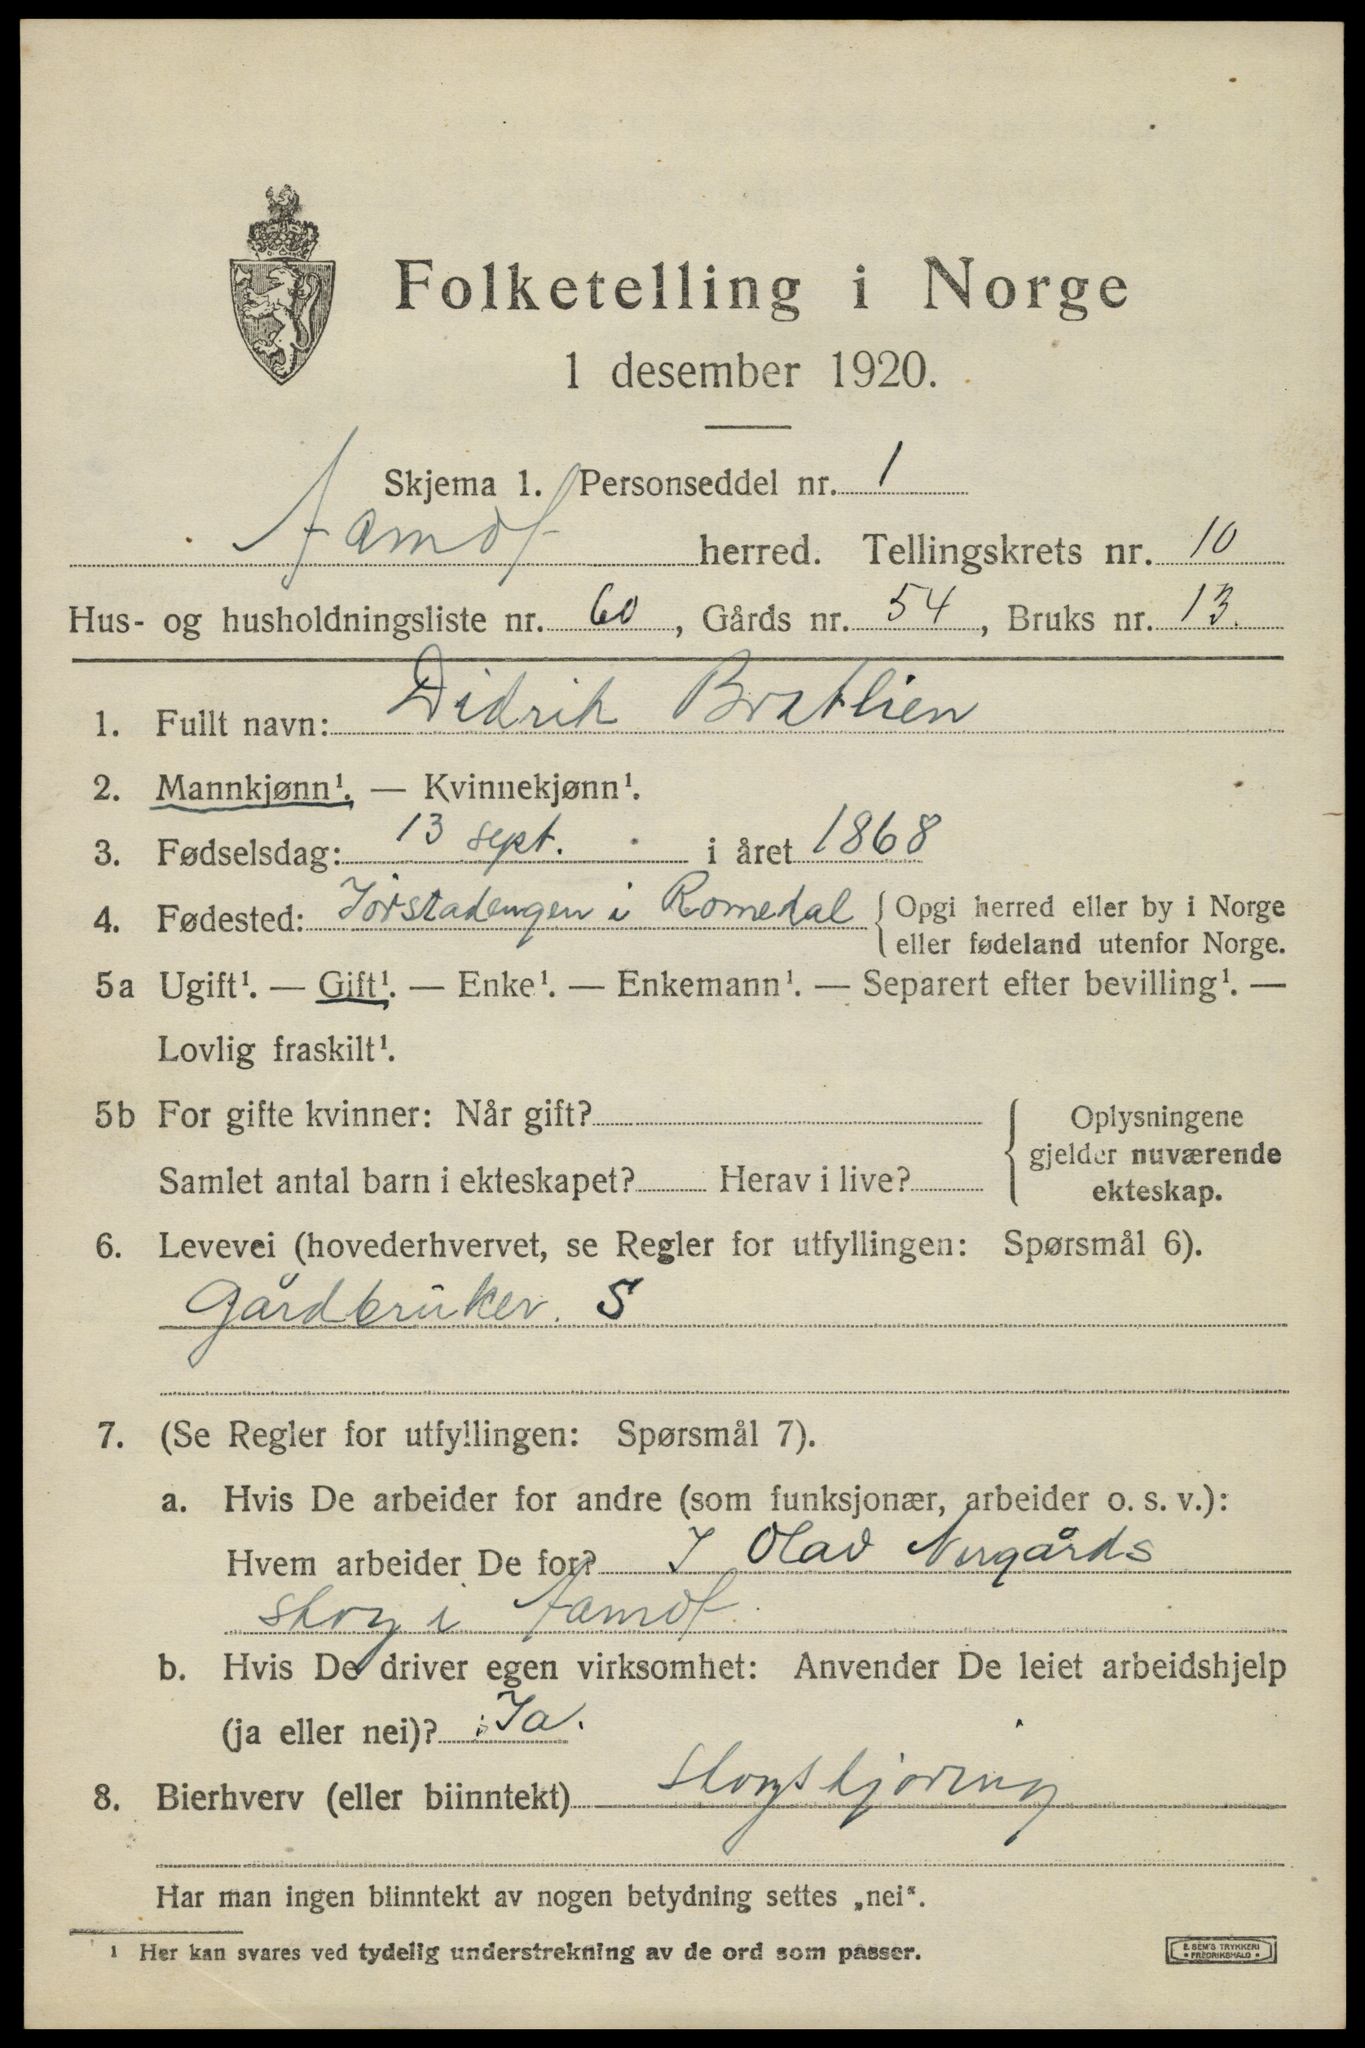 Folketelling i Norge
1 desember 1920.
Skjema 1. Personseddel nr. 1
Aamot herred. Tellingskrets nr. 10
Hus- og husholdningsliste nr. 60, Gårds nr. 54, Bruks nr. 13.
1. Fullt navn: Didrik Bratlien
2. Mannkjønn¹. — Kvinnekjønn¹.
3. Fødselsdag: 13 sept. i året 1868
4. Fødested: Jørstadengen i Romedal { Opgi herred eller by i Norge
eller fødeland utenfor Norge.
5a Ugift¹. — Gift¹. — Enke¹. — Enkemann¹. — Separert efter bevilling¹. —
Lovlig fraskilt¹.
5b For gifte kvinner: Når gift? { Oplysningene
gjelder nuværende
Samlet antal barn i ekteskapet? Herav i live? ekteskap.
6. Levevei (hovederhvervet, se Regler for utfyllingen: Spørsmål 6).
Gårdbruker. S
7. (Se Regler for utfyllingen: Spørsmål 7).
a. Hvis De arbeider for andre (som funksjonær, arbeider o. s. v.):
Hvem arbeider De for? I Olav Nergårds
skog i Aamot.
b. Hvis De driver egen virksomhet: Anvender De leiet arbeidshjelp
(ja eller nei)? Ja.
8. Bierhverv (eller biinntekt) skogskjøring
Har man ingen biinntekt av nogen betydning settes „nei“.
¹ Her kan svares ved tydelig understrekning av de ord som passer.
E. SEM'S TRYKKERI
FREDRIKSHALD